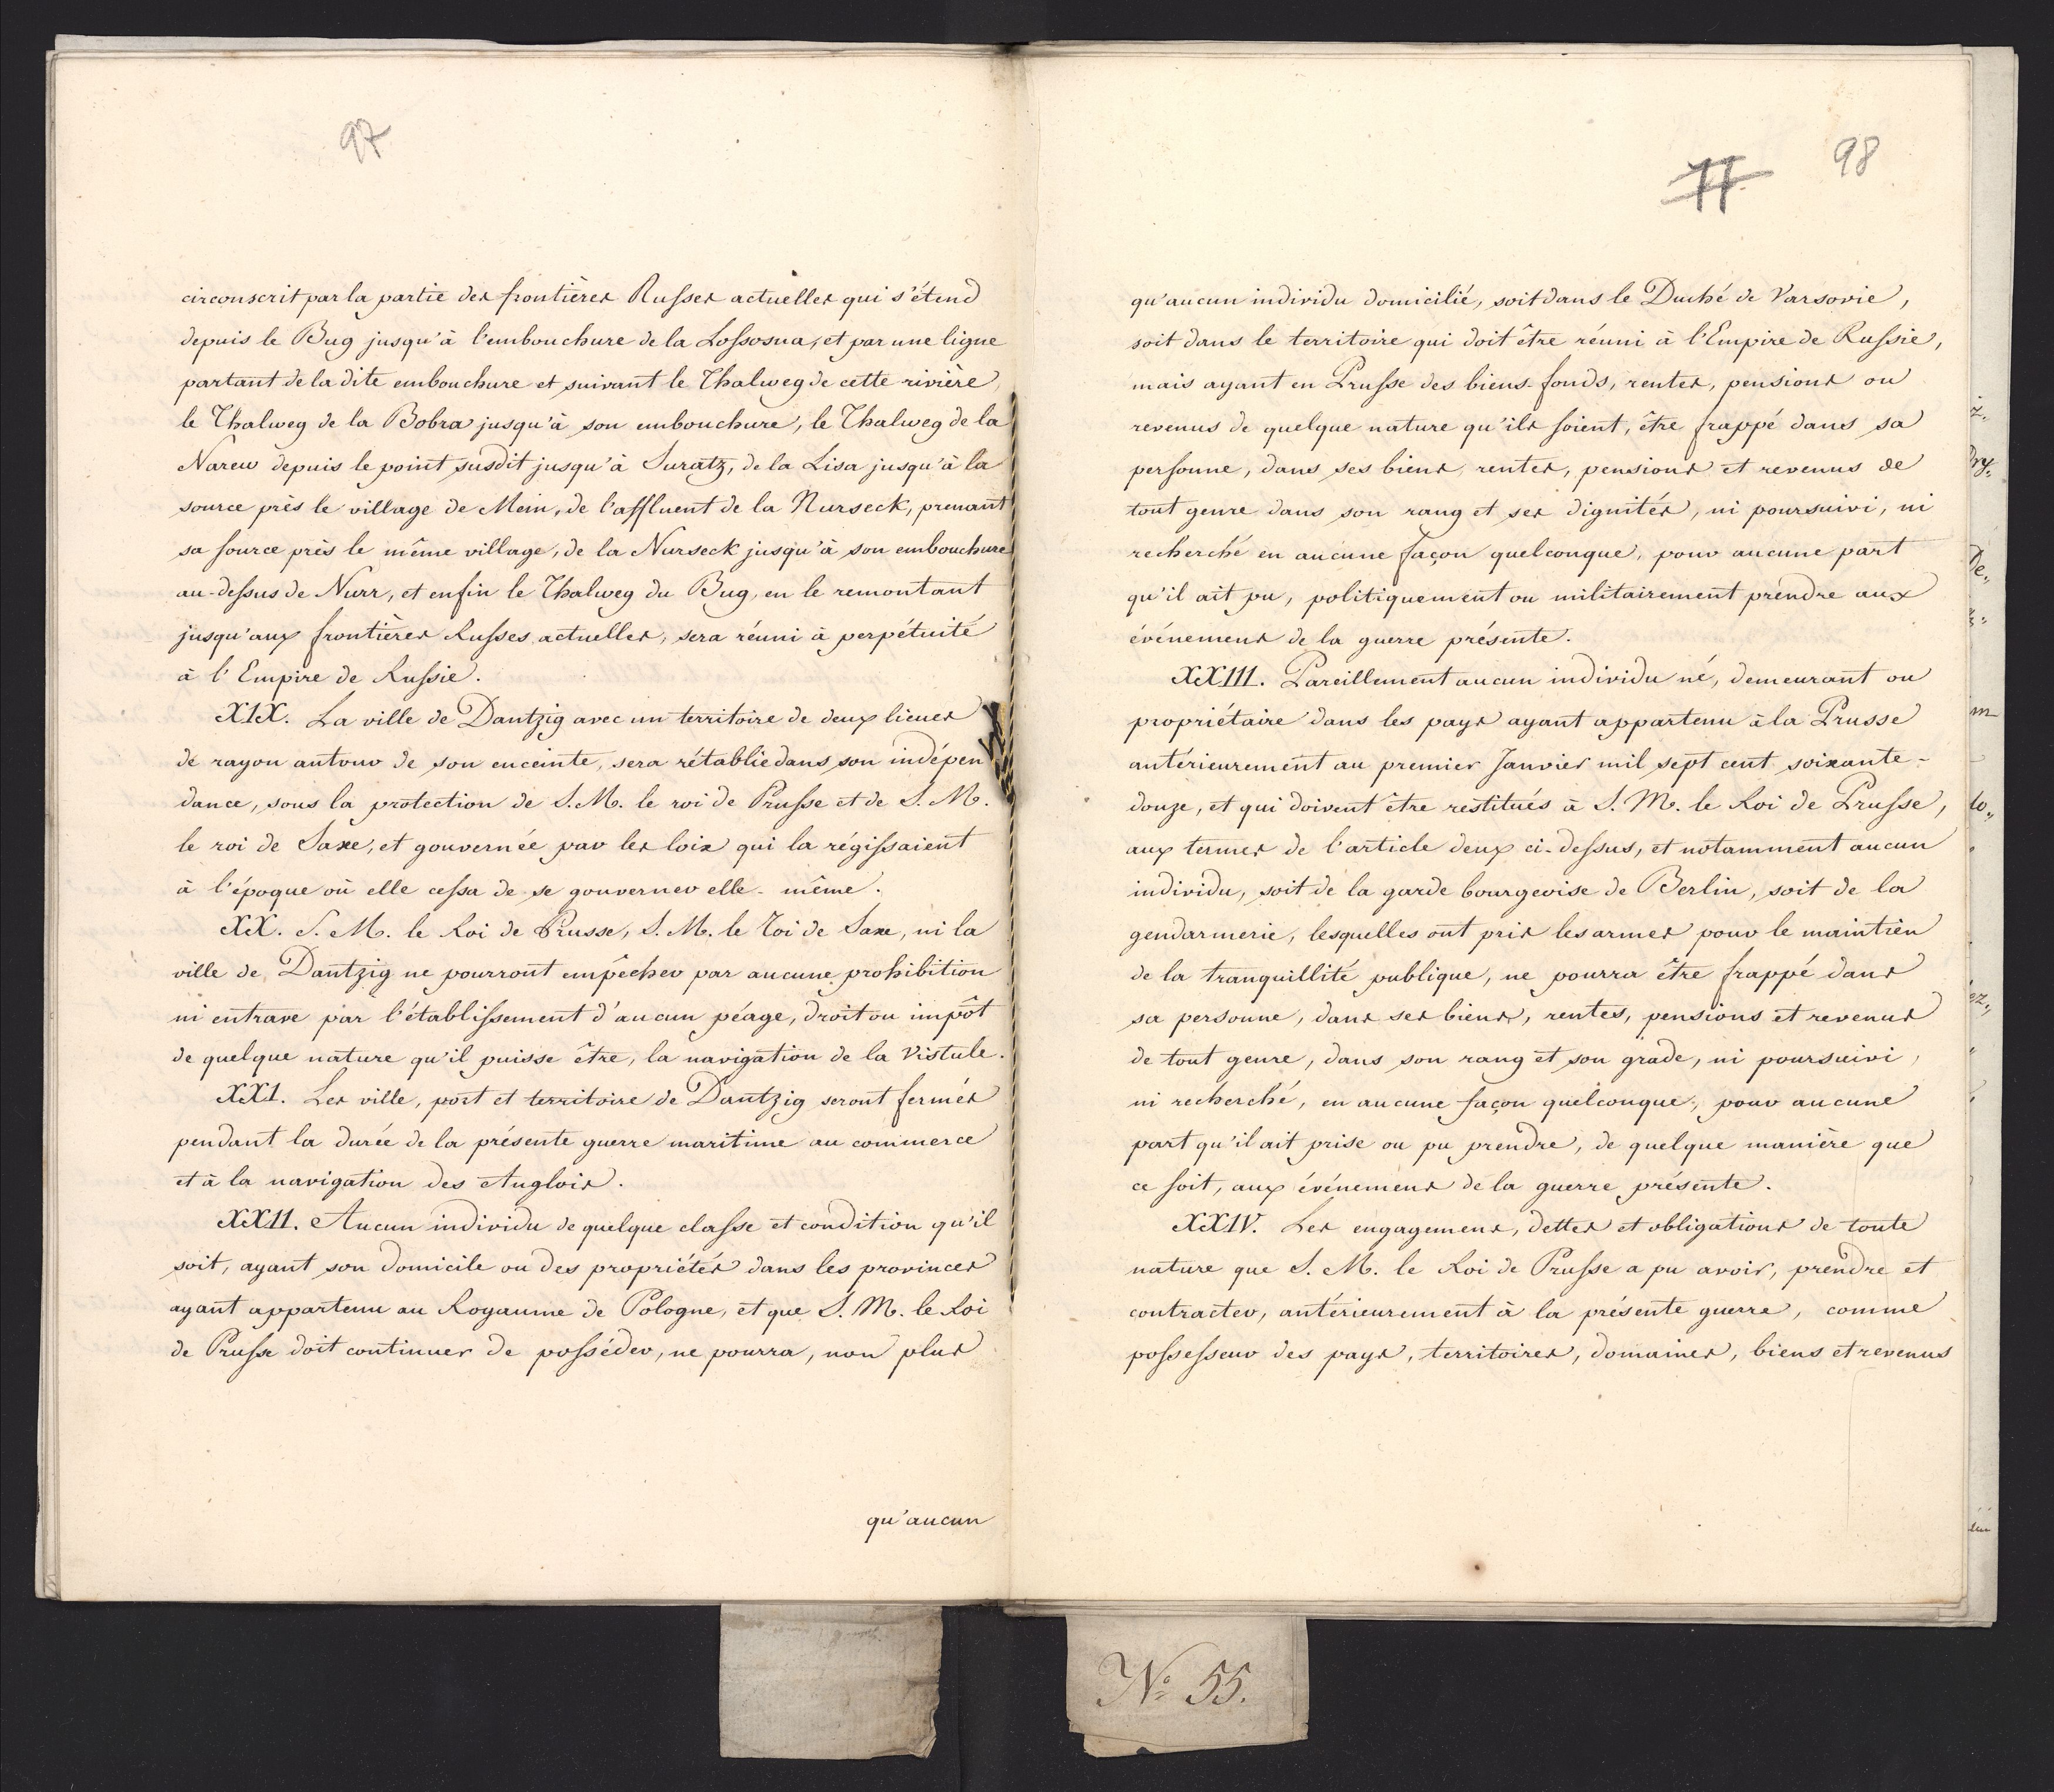 97
circonscrit par la partie des frontières Russes actuelles qui s'étend
depuis le Bug jusqu'à l'embouchure de la Lossosna, et par une ligne
partant de la dite embouchure et suivant le Thalweg de cette rivière,
le Thalweg de la Bobra jusqu'à son embouchure, le Thalweg de la
Narew depuis le point susdit jusqu'à Suratz, de la Lisa jusqu'à la
source près le village de Mein, de l'affluent de la Nurseck, prenant
sa source près le même village, de la Nurseck jusqu'à son embouchure
au-dessus de Nurr, et enfin le Thalweg du Bug, en le remontant
jusqu'aux frontières Russes actuelles, sera réuni à perpétuité
à l'Empire de Russie.
XIX. La ville de Dantzig avec un territoire de deux lieues
de rayon autour de son enceinte, sera rétablie dans son indépen
dance, sous la protection de S. M. le roi de Prusse et de S. M.
le roi de Saxe, et gouvernée par les loix qui la régissaient
à l'époque où elle cessa de se gouverner elle-même.
XX. S. M. le Roi de Prusse, S. M. le Roi de Saxe, ni la
ville de Dantzig ne pourront empêcher par aucune prohibition
ni entrave par l'établissement d'aucun péage, droit ou impôt
de quelque nature qu'il puisse être, la navigation de la Vistule.
XXI. Les ville, port et territoire de Dantzig seront fermés
pendant la durée de la présente guerre maritime au commerce
et à la navigation des Anglois.
XXII. Aucun individu de quelque classe et condition qu'il
soit, ayant son domicile ou des propriétés dans les provinces
ayant appartenu au Royaume de Pologne, et que S. M. le Roi
de Prusse doit continuer de posséder, ne pourra, non plus
qu'aucun
98
11
qu'aucun individu domicilié, soit dans le Duché de Varsovie,
soit dans le territoire qui doit être réuni à l'Empire de Russie,
mais ayant en Prusse des biens-fonds, rentes, pensions ou
revenus de quelque nature qu'ils soient, être frappé dans sa
personne, dans ses biens, rentes, pensions et revenus de
tout genre dans son rang et ses dignités, ni poursuivi, ni
recherché en aucune façon quelconque, pour aucune part
qu'il ait pu, politiquement ou militairement prendre aux
événemens de la guerre présente.
XXIII. Pareillement aucun individu né, demeurant ou
propriétaire dans les pays ayant appartenu à la Prusse
antérieurement au premier Janvier mil sept cent soixante-
douze, et qui doivent être restitués à S. M. le Roi de Prusse,
aux termes de l'article deux ci-dessus, et notamment aucun
individu, soit de la garde bourgeoise de Berlin, soit de la
gendarmerie, lesquelles ont pris les armes pour le maintien
de la tranquillité publique, ne pourra être frappé dans
sa personne, dans ses biens, rentes, pensions et revenus
de tout genre, dans son rang et son grade, ni poursuivi,
ni recherché, en aucune façon quelconque, pour aucune
part qu'il ait prise ou pu prendre, de quelque manière que
ce soit, aux événemens de la guerre présente.
XXIV. Les engagemens, dettes et obligations de toute
nature que S. M. le Roi de Prusse a pu avoir, prendre et
contracter, antérieurement à la présente guerre, comme
possesseur des pays, territoires, domaines, biens et revenus
No 55.